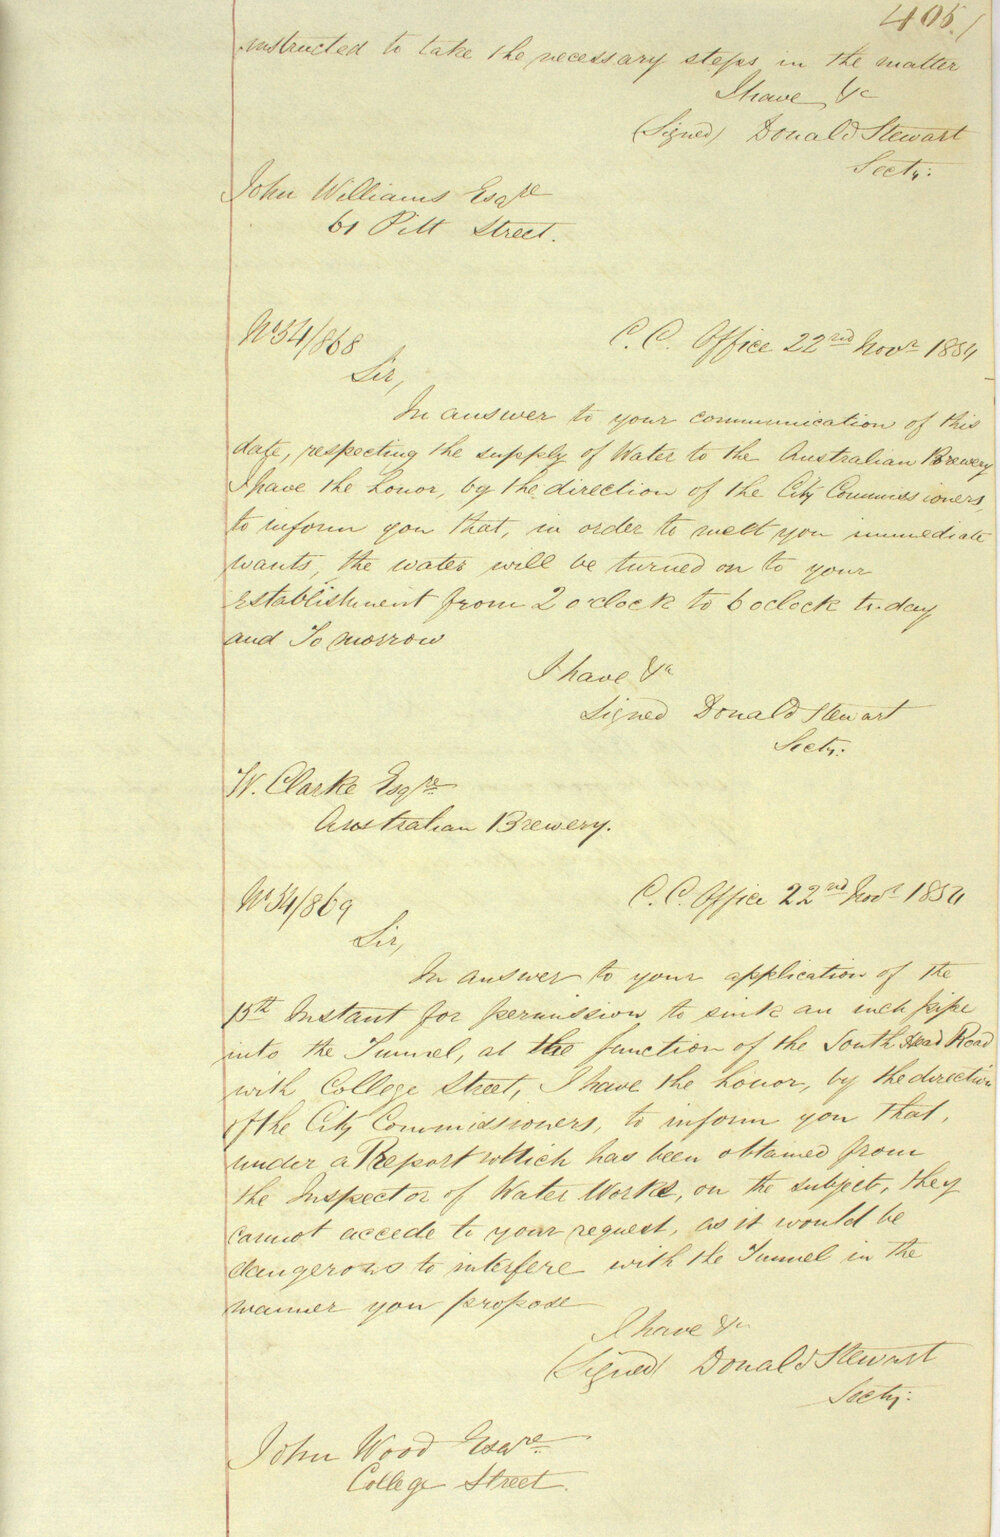 405
instructed to take the necessary steps in the matter
I have &c
(Signed) Donald Stewart
Secty:
John Williams Esqre
61 Pitt Street.
No 54/868
C. C. Office 22nd Novr 1854
Sir,
In answer to your communication of this
date, respecting the supply of Water to the Australian Brewery
I have the honor, by the direction of the City Commissioners,
to inform you that, in order to meet you immediate
wants, the water will be turned on to your
establishment from 2 oclock to 6 oclock to-day
and To morrow
I have &c
Signed Donald Stewart
Secty:
W. Clarke Esqre
Australian Brewery.
No 54/869
C. C. Office 22nd Novr 1854
Sir,
In answer to your application of the
15th Instant for permission to sink an inch pipe
into the Tunnel, at the junction of the South Head Road
with College Street, I have the honor, by the direction
of the City Commissioners, to inform you that,
under a Report which has been obtained from
the Inspector of Water Works, on the subject, they
cannot accede to your request, as it would be
dangerous to interfere with the Tunnel in the
manner you propose
I have &c
(Signed) Donald Stewart
Secty:
John Wood Esqre
College Street.